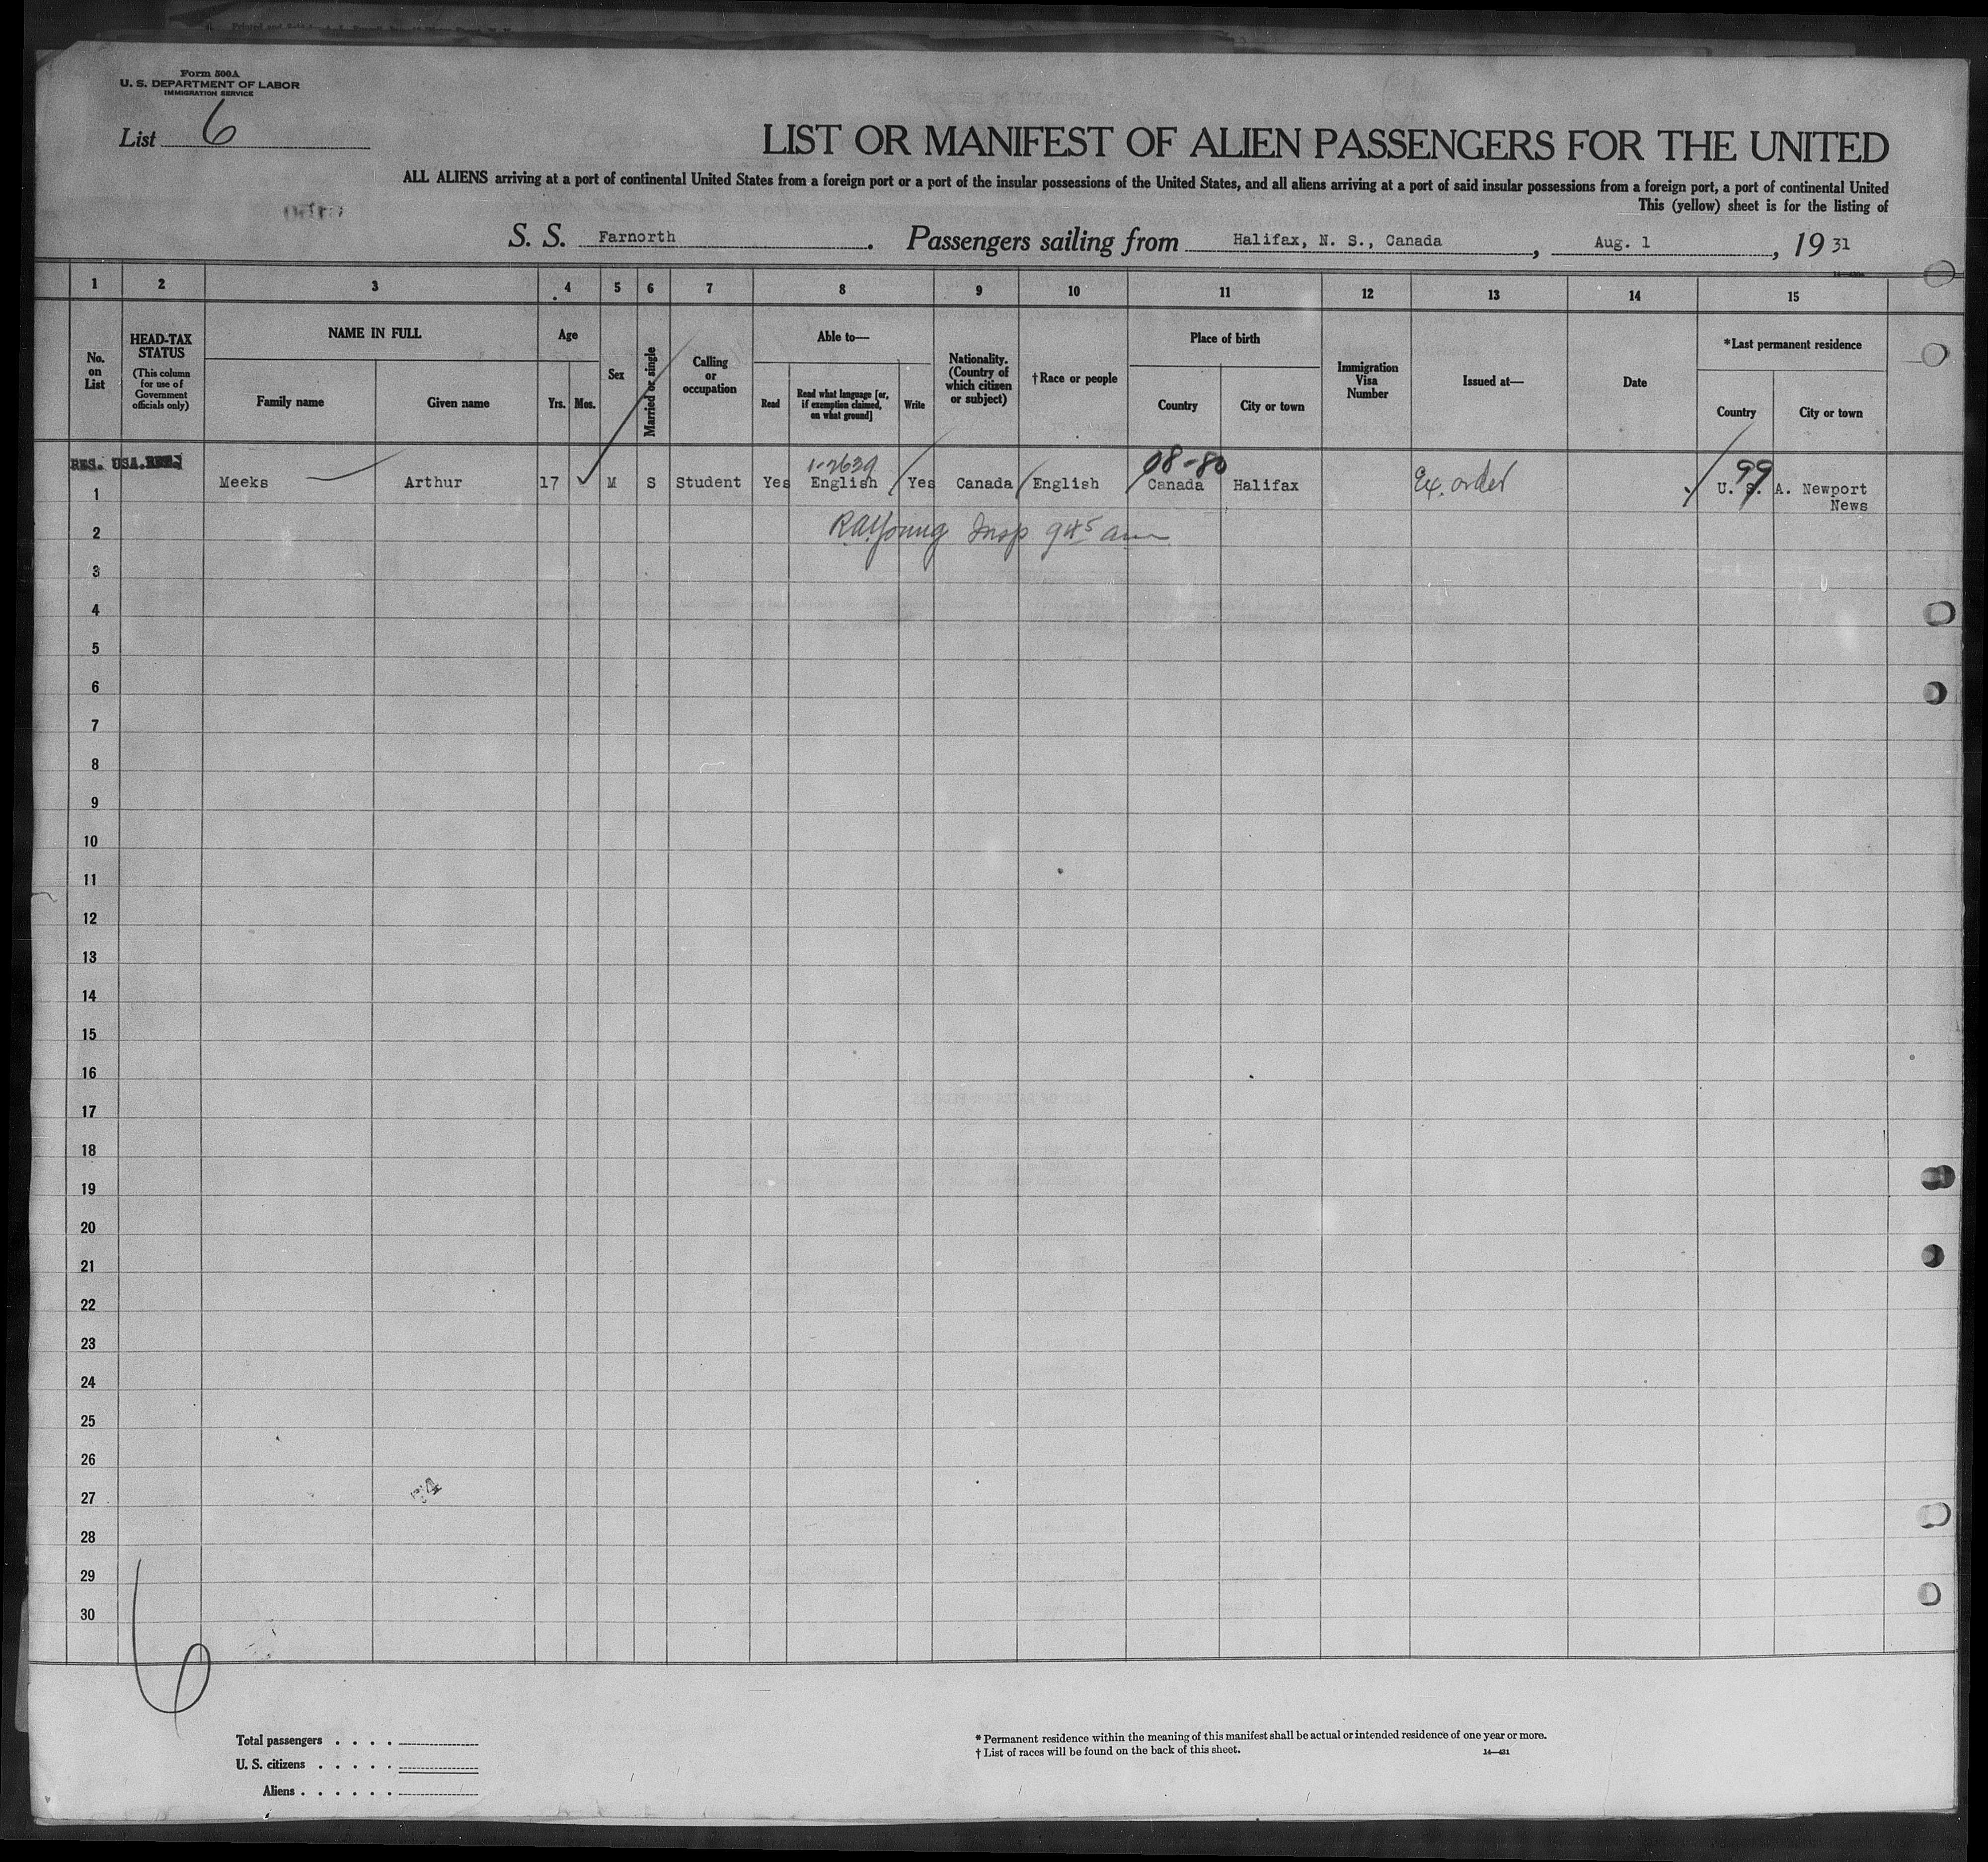 Form 500A
U. S. DEPARTMENT OF LABOR
IMMIGRATION SERVICE
List 6
LIST OR MANIFEST OF ALIEN PASSENGERS FOR THE UNITED
ALL ALIENS arriving at a port of continental United States from a foreign port or a port of the insular possessions of the United States, and all aliens arriving at a port of said insular possessions from a foreign port, a port of continental United
This (yellow) sheet is for the listing of
S. S. Farnorth . Passengers sailing from Halifax, N. S., Canada , Aug. 1 , 19 31
1 2 3 4 5 6 7 8 9 10 11 12 13 14 15
No. on List
HEAD-TAX STATUS
(This column for use of Government officials only)
NAME IN FULL
Family name
Given name
Age
Yrs.
Mos.
Sex
Married or single
Calling or occupation
Able to—
Read
Read what language [or, if exemption claimed, on what ground]
Write
Nationality. (Country of which citizen or subject)
†Race or people
Place of birth
Country
City or town
Immigration Visa Number
Issued at—
Date
*Last permanent residence
Country
City or town
RES. USA.
1-2639
08-80
99
1 Meeks Arthur 17 ✓ M S Student Yes English Yes Canada English Canada Halifax Ex. order U. S. A. Newport
News
2 RAYoung Insp 9 45 am
3
4
5
6
7
8
9
10
11
12
13
14
15
16
17
18
19
20
21
22
23
24
25
26
27
28
29
30
6
Total passengers . . . .
U. S. citizens . . . . .
Aliens . . . . . .
* Permanent residence within the meaning of this manifest shall be actual or intended residence of one year or more.
† List of races will be found on the back of this sheet.
14—431